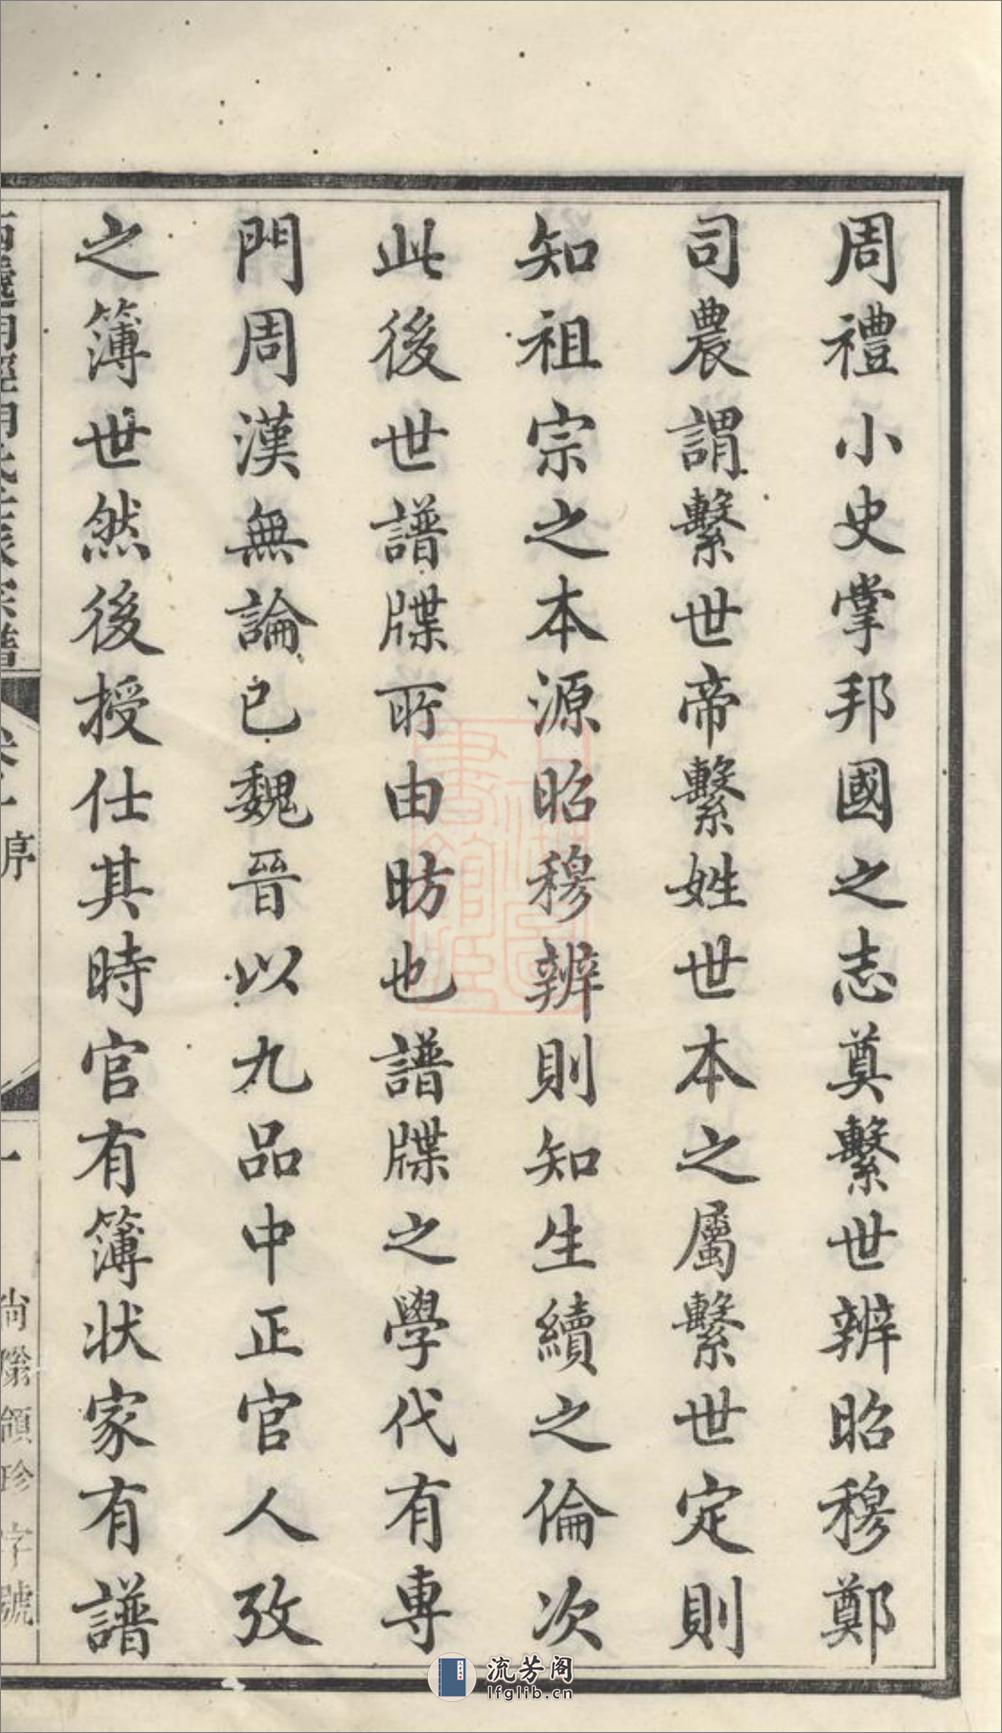 周禮小史掌邦國之志奠繫世辨昭穆鄭
司農謂繫世帝繫姓世本之屬繫世定則
知祖宗之本源昭穆辨則知生續之倫次
此後世譜牒所由昉也譜牒之學代有專
門周漢無論已魏晉以九品中正官人攷
之簿世然後授仕其時官有簿狀家有譜
序
一
流芳阁
lfglib.cn